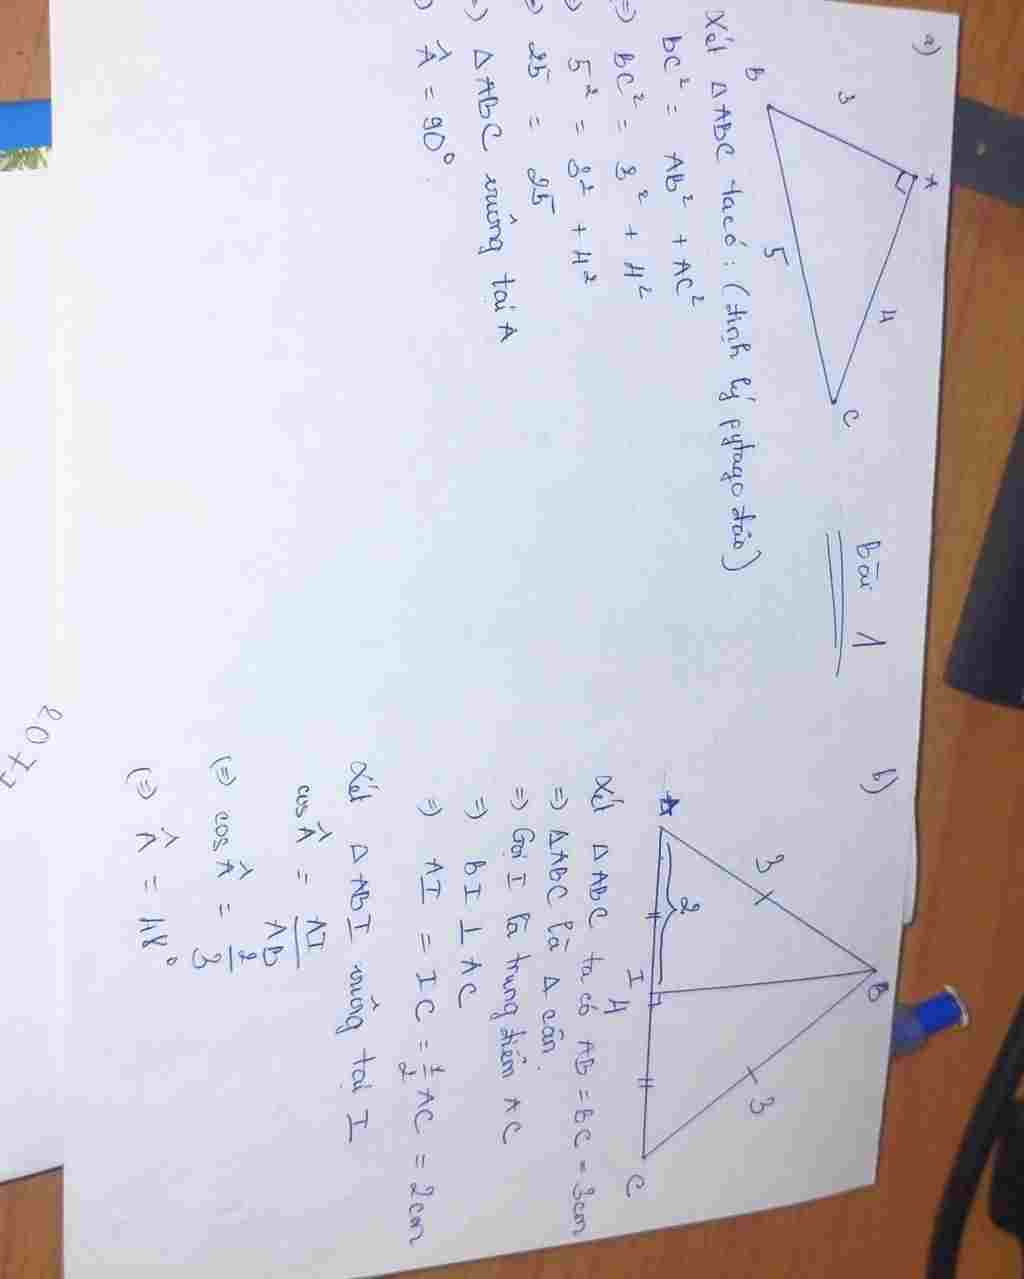 Bài 1
a)
A
3
4
B
5
C
Xét Δ ABC ta có : (định lý pytago đảo)
BC² = AB² + AC²
=> BC² = 3² + 4²
=> 5² = 3² + 4²
=> 25 = 25
=> Δ ABC vuông tại A
=> Â = 90°
b)
B
3
3
2
A
I
4
C
Xét Δ ABC ta có AB = BC = 3cm
=> ΔABC là Δ cân
=> Gọi I là trung điểm AC
=> BI ⊥ AC
=> AI = IC = 1/2 AC = 2cm
Xét Δ ABI vuông tại I
cos Â = AI/AB
(=) cos Â = 2/3
(=) Â = 48°